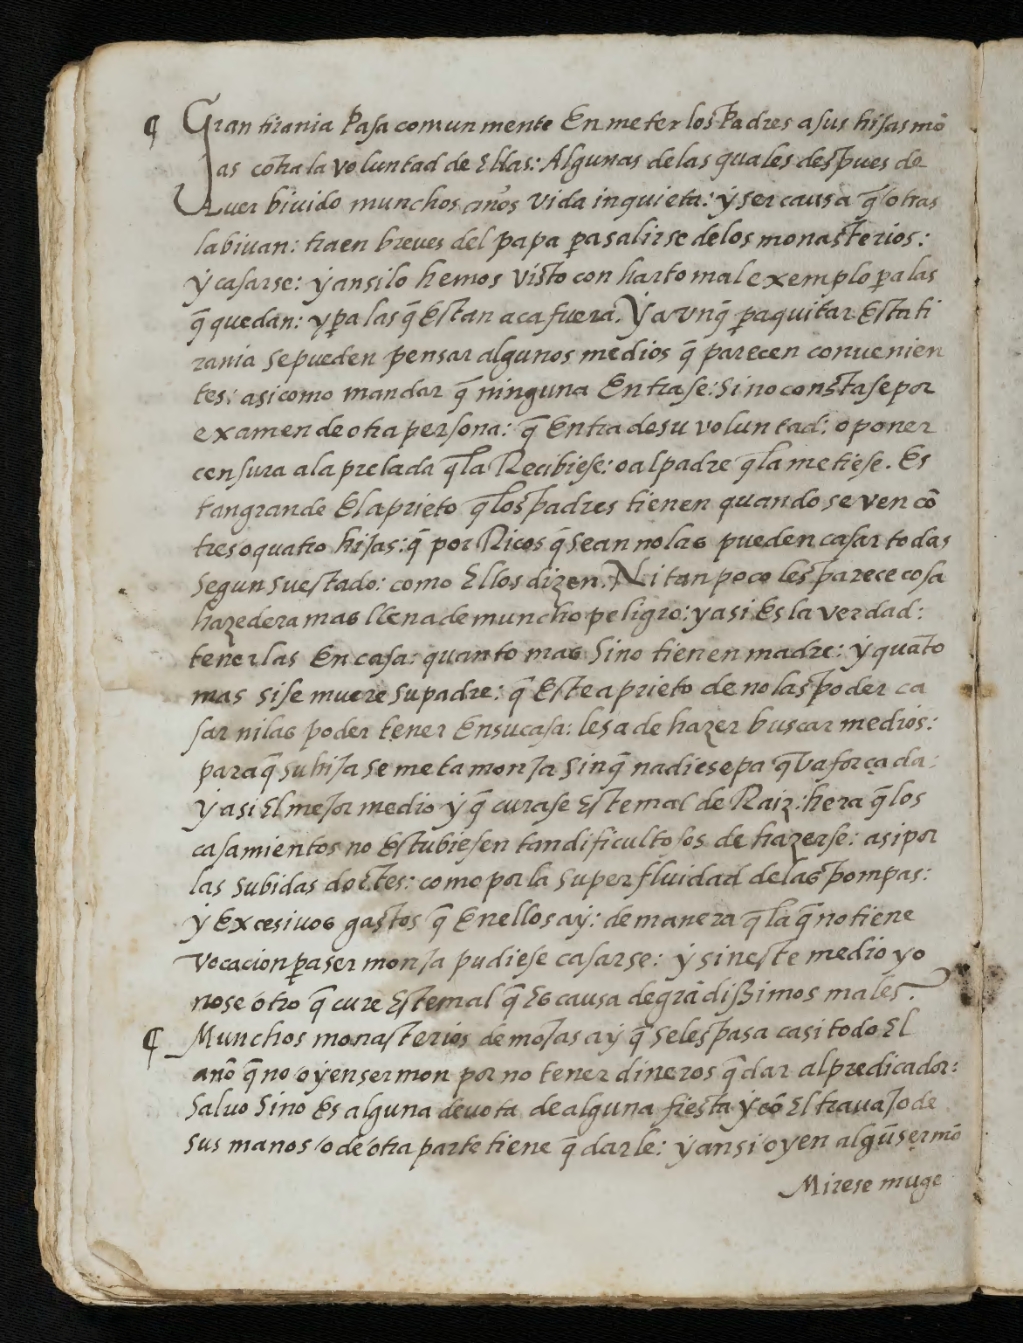 ¶ Gran tirania Pasa comunmente En meter los Padres a sus hijas mō
jas cōtra la voluntad de Ellas: Algunas de las quales despues de
aver bivido munchos años vida inquieta: y ser causa q̄ otras
la bivan: traen breves del papa p̄a salirse de los monasterios:
y casarse: y ansi lo hemos visto con harto mal exemplo p̄a las
q̄ quedan: y p̄a las q̄ Estan aca fuera. Y avnq̄ p̄a quitar Esta ti
rania se pueden pensar algunos medios q̄ parecen convenien
tes: asi como mandar q̄ ninguna Entrase: si no constase por
examen de otra persona: q̄ Entra de su voluntad: o poner
censura a la prelada q̄ la Recibiese: o al padre q̄ la metiese. Es
tan grande El aprieto q̄ los padres tienen quando se ven cō
tres o quatro hijas: q̄ por Ricos q̄ sean no las pueden casar todas
segun su estado: como Ellos dizen. Ni tan poco les parece cosa
hazedera mas llena de muncho peligro: y asi Es la verdad:
tenerlas En casa: quanto mas si no tienen madre: y quāto
mas si se muere su padre: q̄ Este aprieto de no las poder ca
sar ni las poder tener En su casa: les a de hazer buscar medios:
para q̄ su hija se meta monja sin q̄ nadie sepa q̄ va forçada:
Y asi El mejor medio y q̄ curase Este mal de Raiz: hera q̄ los
casamientos no Estubiesen tan dificultosos de hazerse: asi por
las subidas doctes: como por la superfluidad de las pompas:
y Excesivos gastos q̄ En ellos ay: de manera q̄ la q̄ no tiene
vocacion p̄a ser monja pudiese casarse: y sin este medio yo
no se otro q̄ cure Este mal q̄ Es causa de grādissimos males.
¶ Munchos monasterios de mojas ay q̄ se les pasa casi todo El
año q̄ no oyen sermon por no tener dineros q̄ dar al predicador:
salvo si no Es alguna devota de alguna fiesta y cō El travajo de
sus manos o de otra parte tiene q̄ darle: y ansi oyen algū sermō
Mirese muge